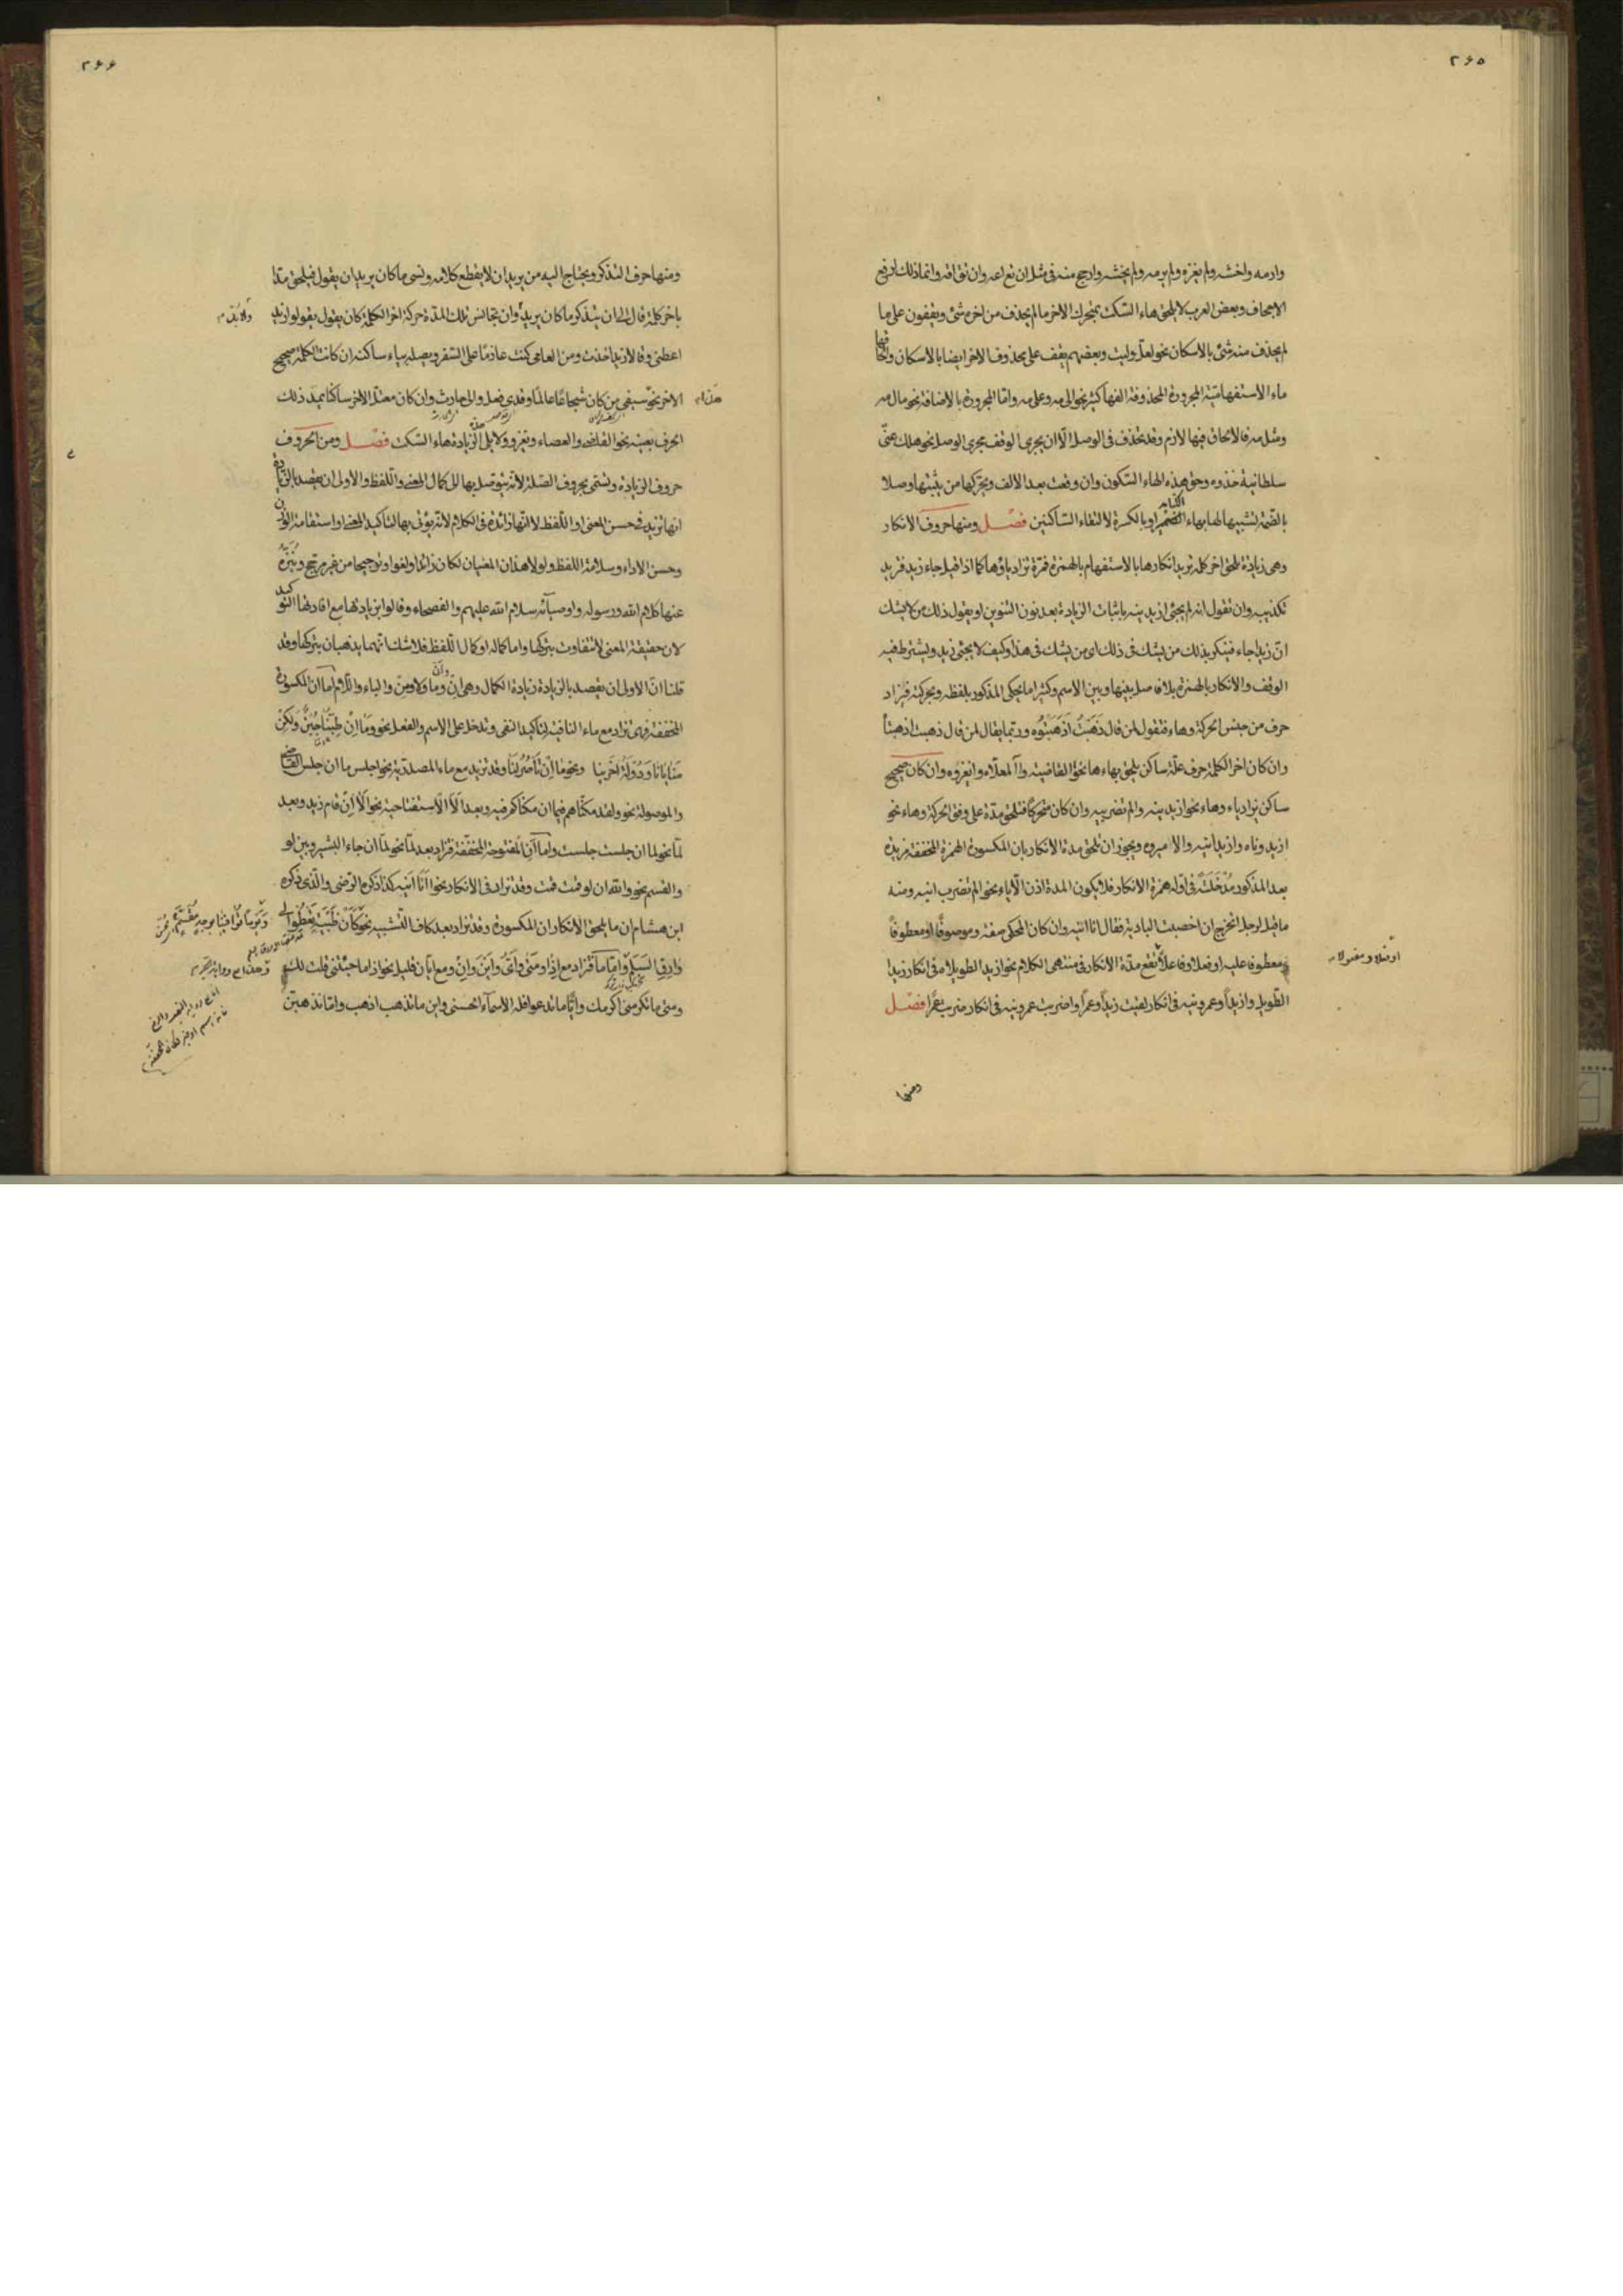 ٢٦٥
وارمه واخشه ولم يغزه ولم يرمه ولم يخشه وارجح منه فى مثل ان تع اعه وان تق اقه وانما ذلك لدفع
الاجحاف وبعض العرب لا يلحق هاء السكت بمتحرك الاخر ما لم يحذف من اخره شئ ويقفون على ما
لم يحذف منه شئ بالاسكان نحو لعل وليت وبعضهم يقف على محذوف الاخر ايضا بالاسكان والحاقها
ماء الاستفهامية المجرورة المحذوفة الفها كثير نحو الى مه وعلى مه واما المجرورة بالاضافة نحو مال مه
ومثل مه فالالحاق فيها لازم وقد يحذف فى الوصل الا ان يجرى الوقف مجرى الوصل نحو هلك عنى
سلطانية خذوه وحق هذه الهاء السكون وان وقعت بعد الالف ويحركها من يثبتها وصلا
بالضمة لتشبيهها لها بهاء الضمير او بالكسرة لالتقاء الساكنين فصل ومنها حروف الانكار
وهى زيادة تلحق اخر كلمة تريد انكارها بالاستفهام بالهمزة فمرة تزاد ياؤها كما اذا قيل جاء زيد فتريد
تكذيبه وان تقول انه لم يجئ ازيد ينه باثبات الزيادة بعد نون التنوين او يقول ذلك من لا يشك
ان زيدا جاء فينكر بذلك من يشك فى ذلك اى من يشك فى هذا وكيف لا يجئ زيد ويشترط فيه
الوقف والانكار بالهمزة بلا فاصل بينها وبين الاسم وكثيرا ما يحكى المذكور بلفظه وبحركته فيزاد
حرف من جنس الحركة وهاء فتقول لمن قال ذهبت اذهبتوه وربما يقال لمن قال ذهبت اذهبتاه
وان كان اخر الكلمة حرف علة ساكن يلحق بهاء ها نحو القاضيه وآ لمعلاه وايغزوه وان كان صحيح
ساكن يزاد ياء وهاء نحو ازيد ينه والم تضربيه وان كان متحركا فتلحق مدة على وفق الحركة وهاء نحو
ازيد وناه وازيد انيه والا اميروه ويجوز ان تلحق مدة الانكار بان المكسورة الهمزة المخففة مزيدة
بعد المذكور مدخلة فى اوله همزة الانكار فلا يكون المدة اذن الا ياء نحو الم تضرب انيه ومنه
ما قيل لرجل اتخرج ان اخصبت البادية فقال انا انيه وان كان المحكى صفة وموصوفا او معطوفا
ومعطوفا عليه او فعلا وفاعلا تقع مدة الانكار فى منتهى الكلام نحو ازيد الطويلاه فى انكار زيدا
او فعلا ومفعولا
الطويل وازيدا وعمرونيه فى انكار لقيت زيدا وعمرا واضربت عمرونيه فى انكار ضربت عمرا فصل
ومنها
٢٦٦
ومنها حرف التذكر ويحتاج اليه من يريد ان لا يقطع كلامه ونسى ما كان يريد ان يقول فيلحق مدا
باخر كلمة قال الى ان يتذكر ما كان يريد وان يجانس تلك المدة حركة اخر الكلمة كان يقول يقولو ازيد
ولابد
اعطنى وقالا زيدا خذت ومن العامى كنت عازما على السفر ويصله بياء ساكنة ان كانت الكلمة صحيح
الاخر نحو سيفى من كان شجاعا عالما وقدى فصل والى حارث وان كان معتل الاخر ساكنا يمد ذلك
هذا
الحرف بعينه نحو القاضى والعصاء ونغزو ولا يلى الزيادة هاء السكت فصل ومن الحروف
حروف الزيادة وتسمى بحروف الصلة لانه يتوصل بها الى كمال المعنى واللفظ والاولى ان يقصد بالزيادة
انها تزيد فى حسن المعنى او اللفظ لا انها زائدة فى الكلام لانه يؤتى بها لتاكيد المعنى او استقامة الوزن
وحسن الاداء وسلامة اللفظ ولولا هذان المعنيان لكان زائدا ولغوا وترجيحا من غير مرجح وينزه
عنها كلام الله ورسوله واوصيائه سلام الله عليهم والفصحاء وقالوا بزيادتها مع افادتها التوكيد
لان حقيقة المعنى لا تتفاوت بتركها واما كماله او كمال اللفظ فلا شك انهما يذهبان بتركها وقد
قلنا ان الاولى ان يقصد بالزيادة زيادة الكمال وهى ان وأن وما ولا ومن والباء واللام اما ان المكسورة
المخففة فهى تزاد مع ماء النافية لتاكيد النفى وتدخل على الاسم والفعل نحو وما ان طبنا جبن ولكن
منايانا ودولة اخرينا ونحو ما ان ناصرلنا وقد تزيد مع ماء المصدرية نحو اجلس ما ان جلس القاضى
والموصولة نحو ولقد مكناهم فيما ان مكناكم فيه وبعد ألا الاستفتاحية نحو الا ان قام زيد وبعد
لما نحو لما ان جلست جلست واما أن المفتوحة المخففة فتزاد بعد لما نحو لما ان جاء البشير وبين لو
والقسم نحو والله ان لو قمت قمت وقد تزاد فى الانكار نحو أانا انيه كذا ذكره الرضى والذى ذكره
ابن هشام ان ما يلحق الانكار ان المكسورة وقد تزاد بعد كاف التشبيه نحو كأن ظبية تعطو الى
ويوما توافينا بوجه مقسم
وارق السلم واما ما فتزاد مع اذا ومتى وأى واين وان ومع ايان قليل نحو اذا ما جئتنى قلت لك
ومتى ما تكرمنى اكرمك وأيا ما تدعوا فله الاسماء الحسنى واين ما تذهب اذهب واما تذهبن